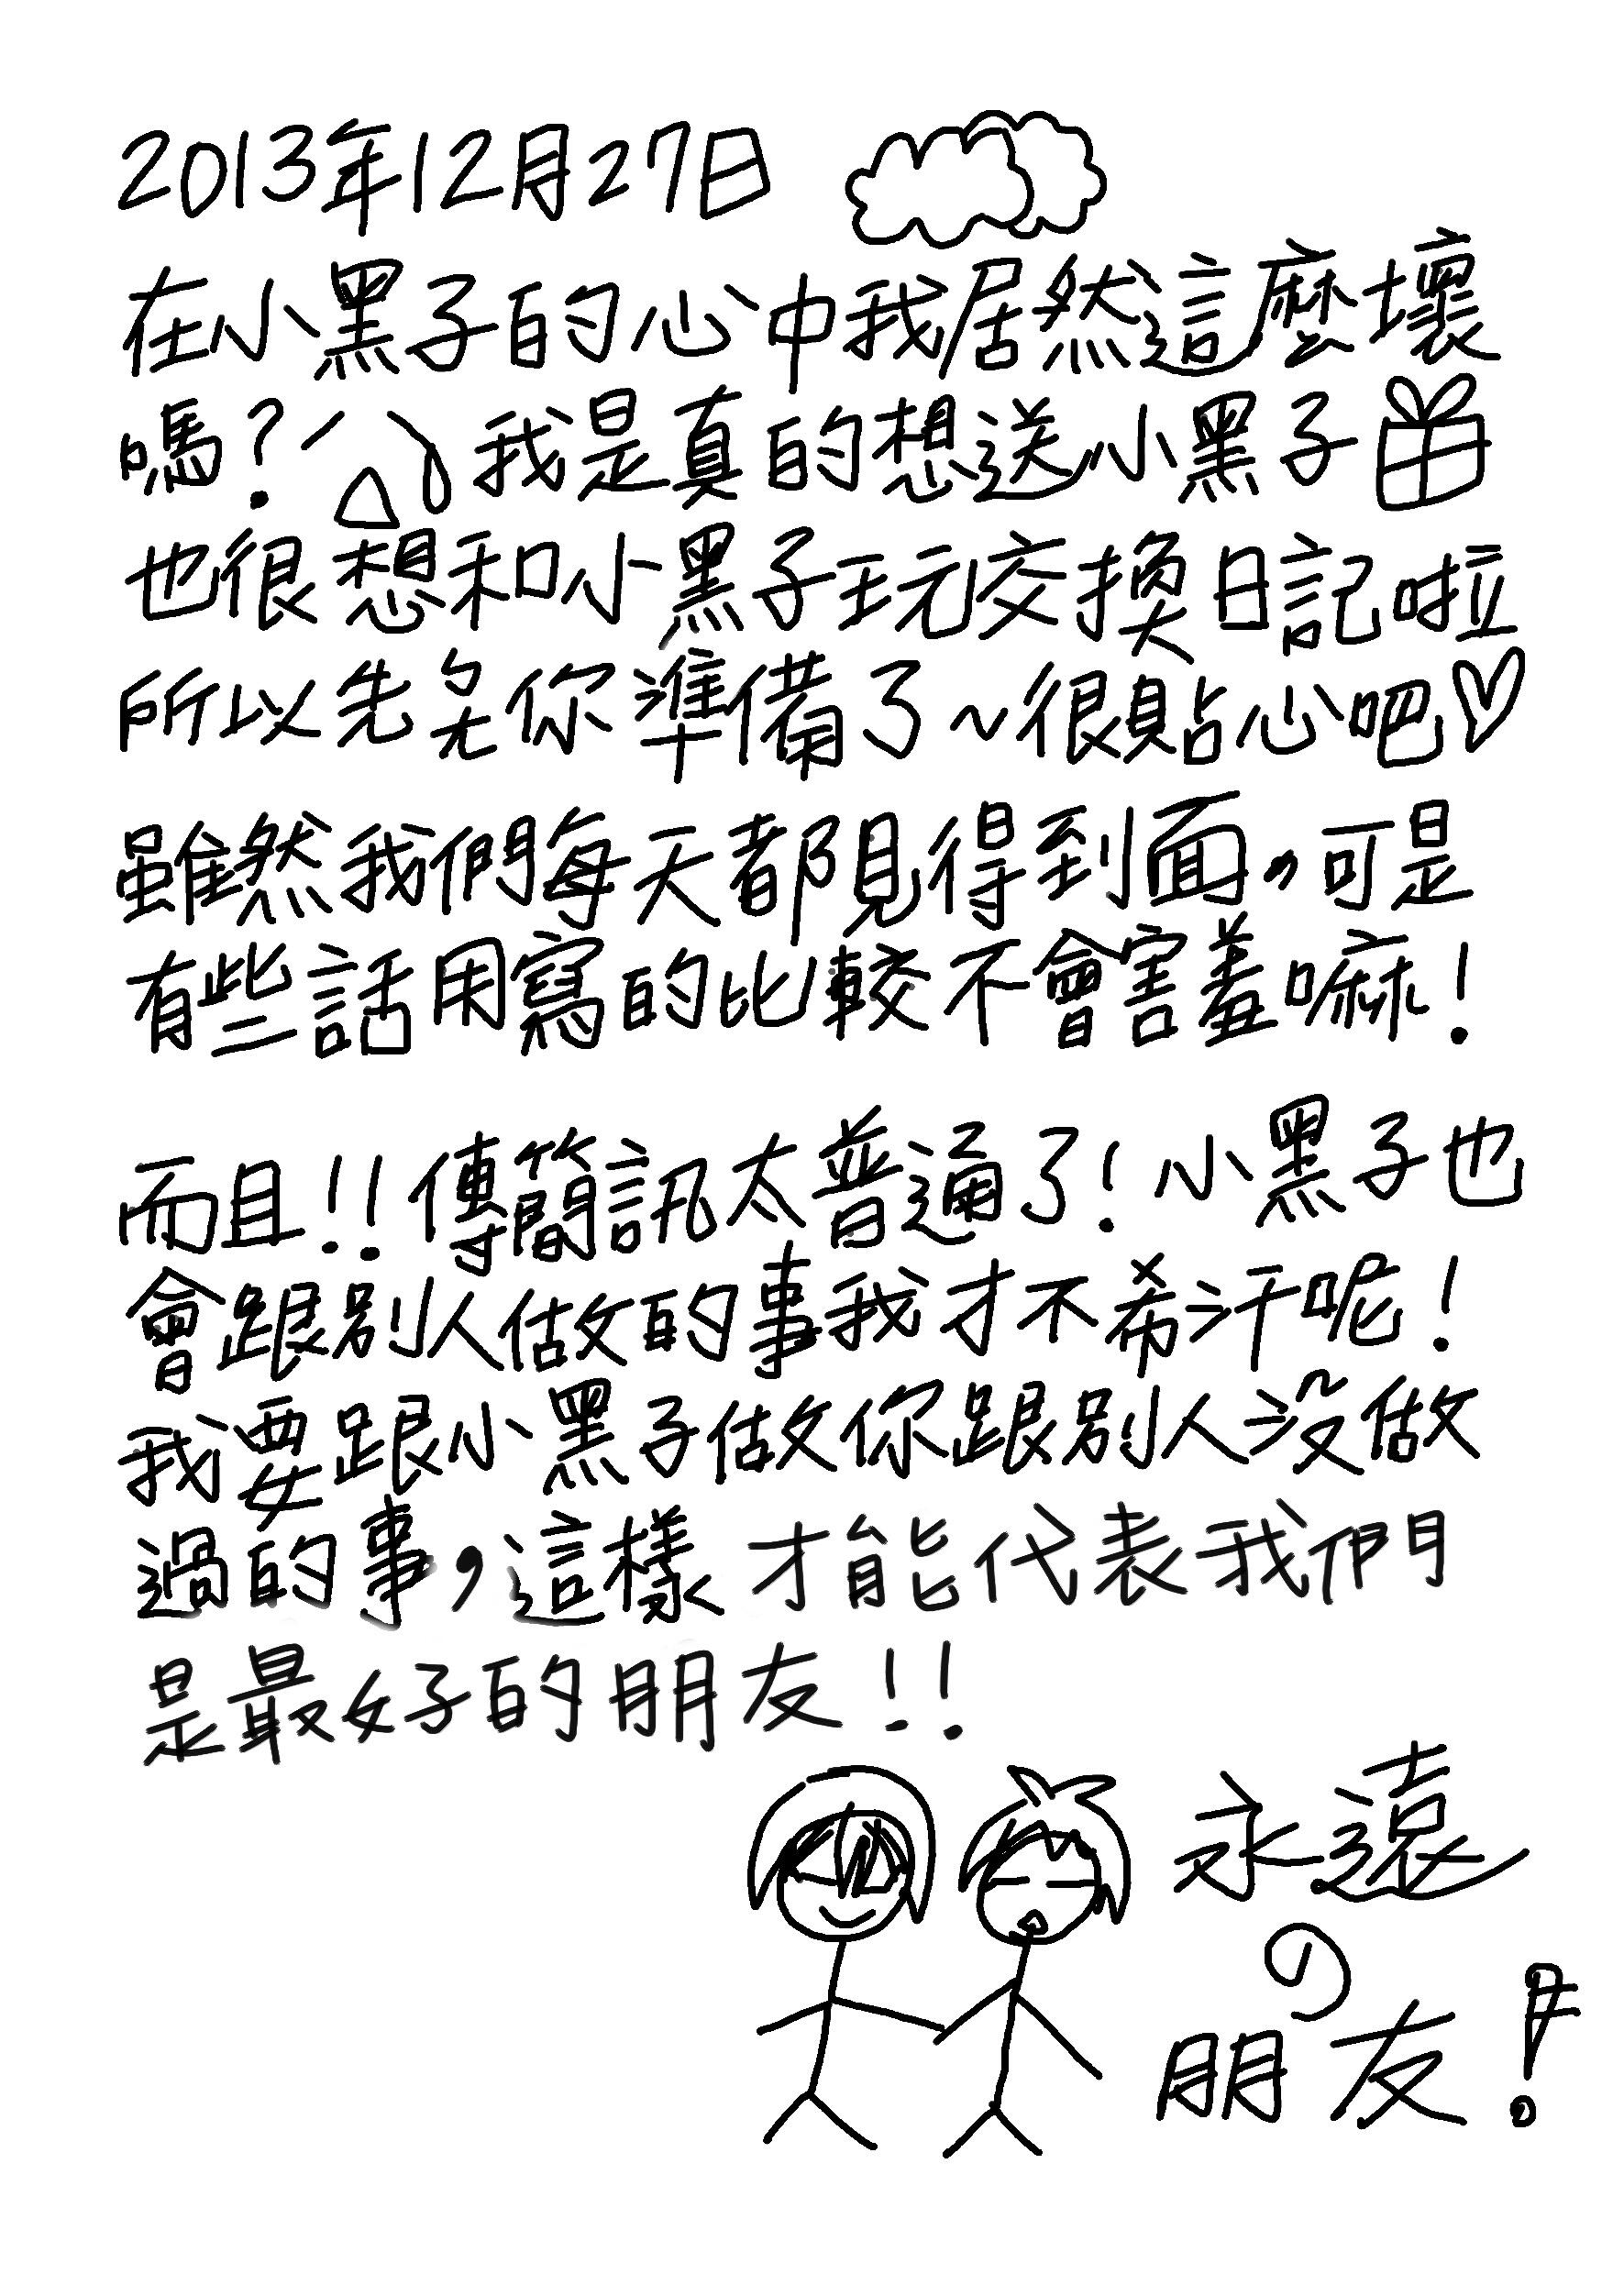 2013年12月27日
在小黑子的心中我居然這麼壞
嗎？我是真的想送小黑子
也很想和小黑子玩交換日記啦
所以先幫你準備了～很貼心吧♡
雖然我們每天都見得到面，可是
有些話用寫的比較不會害羞嘛！
而且！！傳簡訊太普通了！小黑子也
會跟別人做的事我才不希汗呢！
我要跟小黑子做你跟別人沒做
過的事，這樣才能代表我們
是最好的朋友！！
永遠
の
朋友！